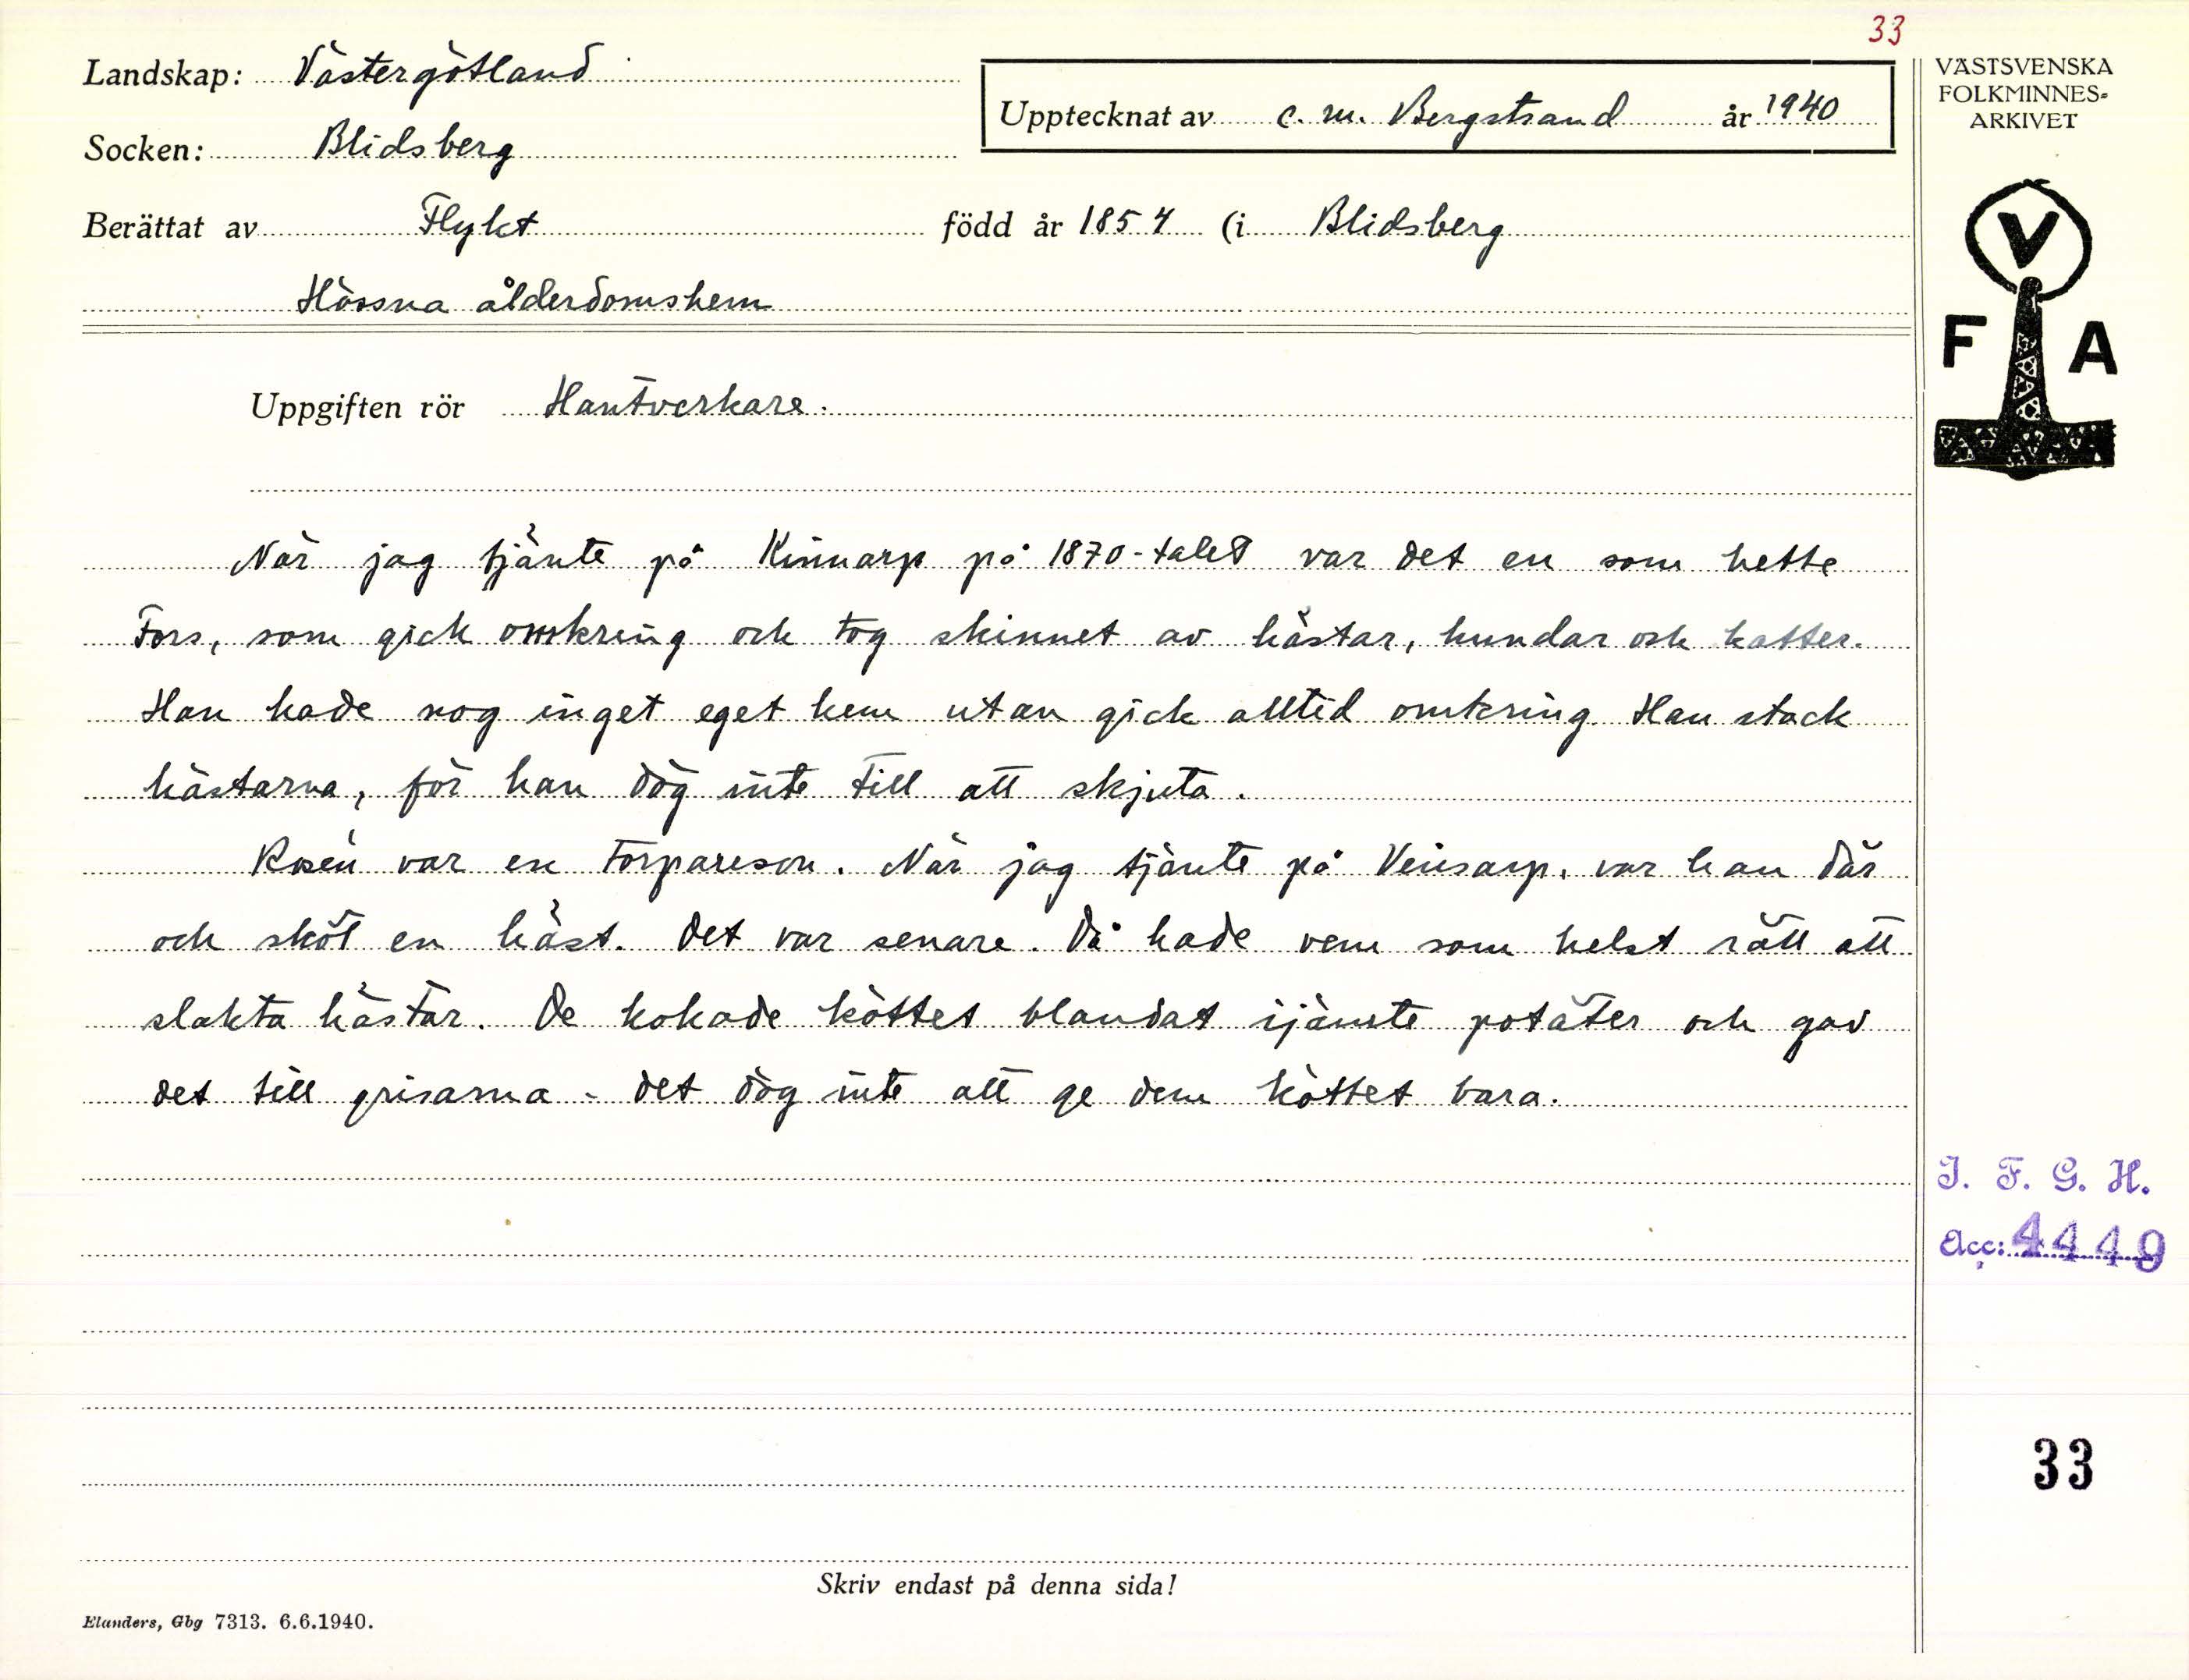 33
Landskap: Västergötland
Upptecknat av C. M. Bergstrand år 1940
VÄSTSVENSKA
FOLKMINNES-
ARKIVET
Socken: Blidsberg
Berättat av Flykt född år 1854 (i Blidsberg
Hössna ålderdomshem
V
F A
Uppgiften rör Hantverkare.
När jag tjänte på Kinnarp på 1870-talet var det en som hette
Fors, som gick omkring och tog skinnet av hästar, hundar och katter.
Han hade nog inget eget hem utan gick alltid omkring Han stack
hästarna, för han dög inte till att skjuta.
Rosén var en torpareson. När jag tjänte på Vensarp, var han där
och sköt en häst. Det var senare. Då hade vem som helst rätt att
slakta hästar. De kokade köttet blandat ijämte potäter och gav
det till grisarna - det dög inte att ge dem köttet bara.
I. F. G. H.
Acc: 4449
33
Skriv endast på denna sida!
Elanders, Gbg 7313. 6.6.1940.